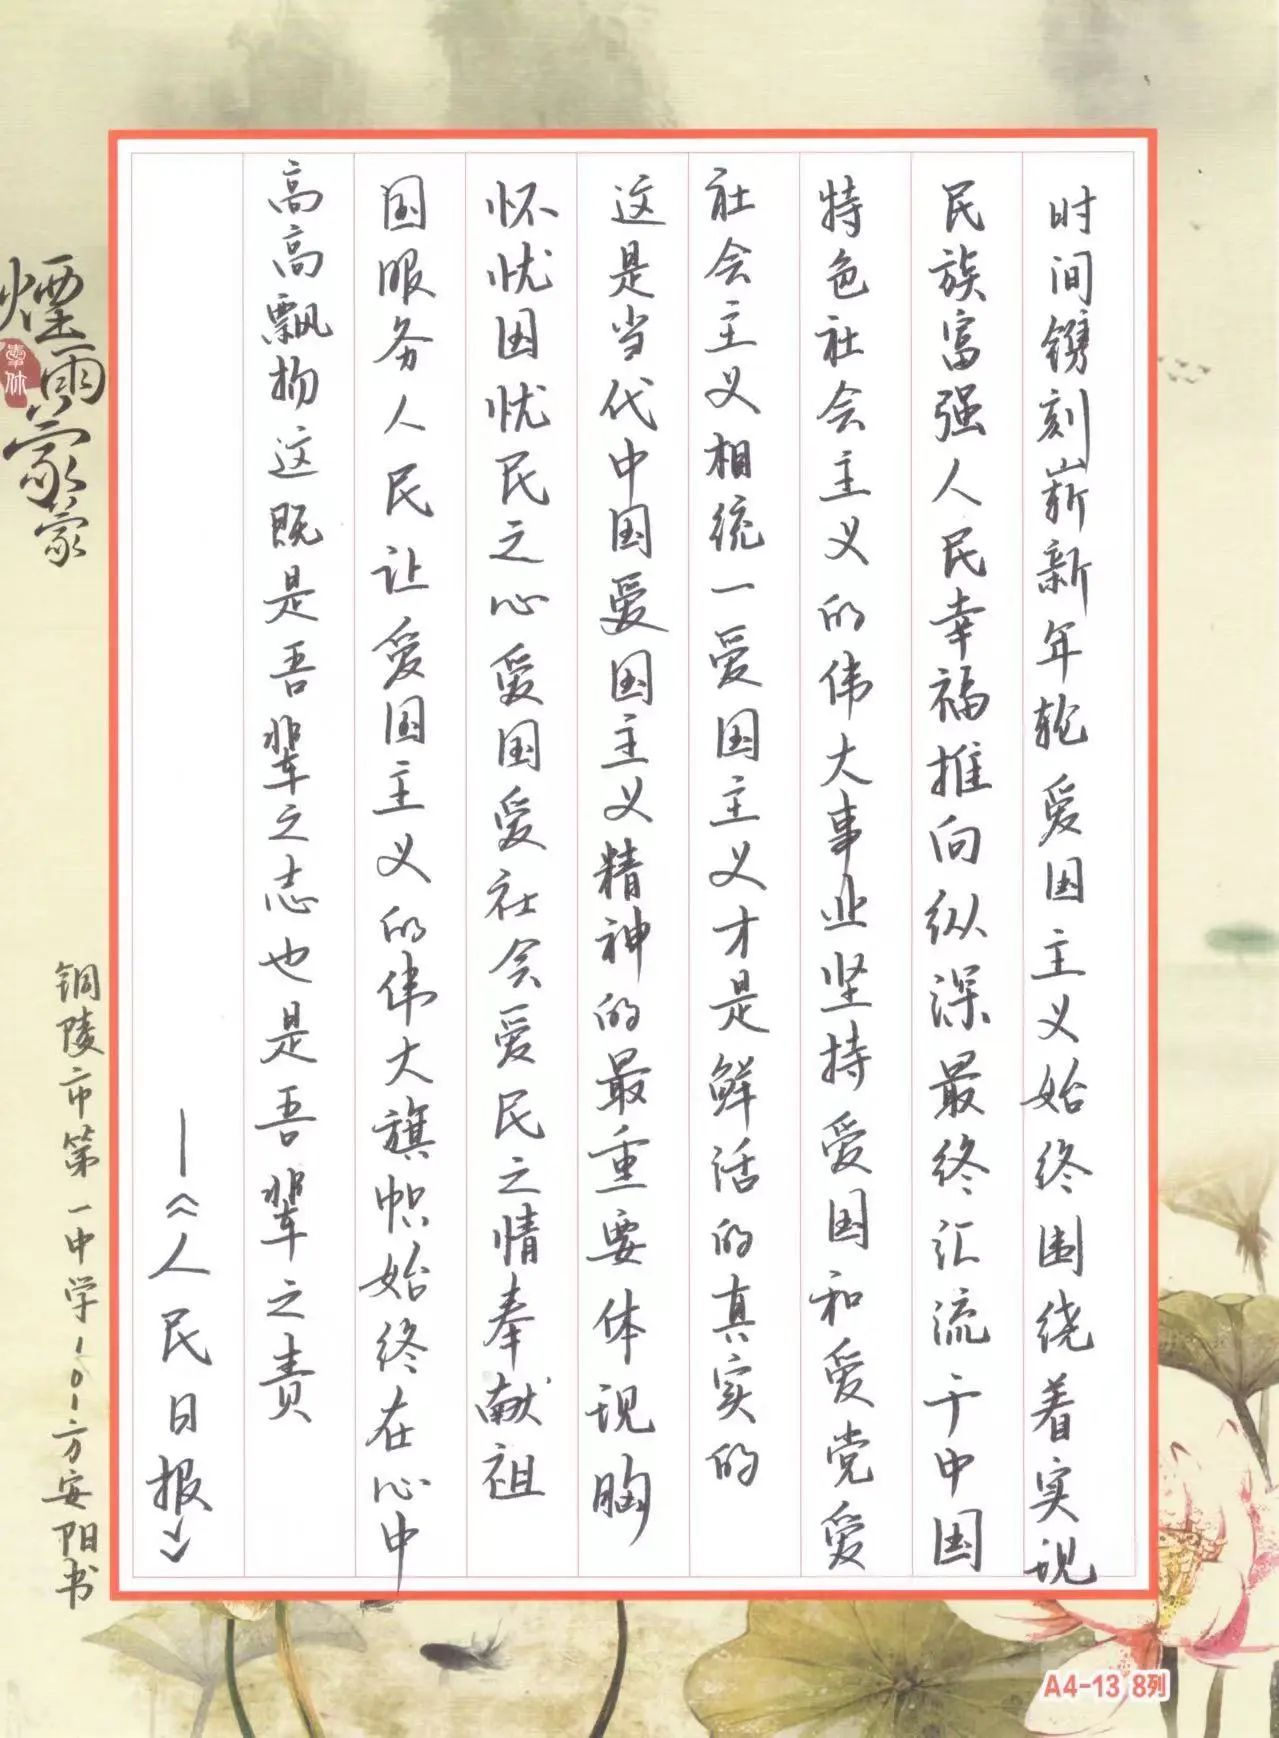 时间镌刻崭新年轮爱国主义始终围绕着实现
民族富强人民幸福推向纵深最终汇流于中国
特色社会主义的伟大事业坚持爱国和爱党爱
社会主义相统一爱国主义才是鲜活的真实的
这是当代中国爱国主义精神的最重要体现胸
怀忧国忧民之心爱国爱社会爱民之情奉献祖
国服务人民让爱国主义的伟大旗帜始终在心中
高高飘扬这既是吾辈之志也是吾辈之责
—《人民日报》
铜陵市第一中学101方安阳书
煙雨蒙蒙
A4-13 8列